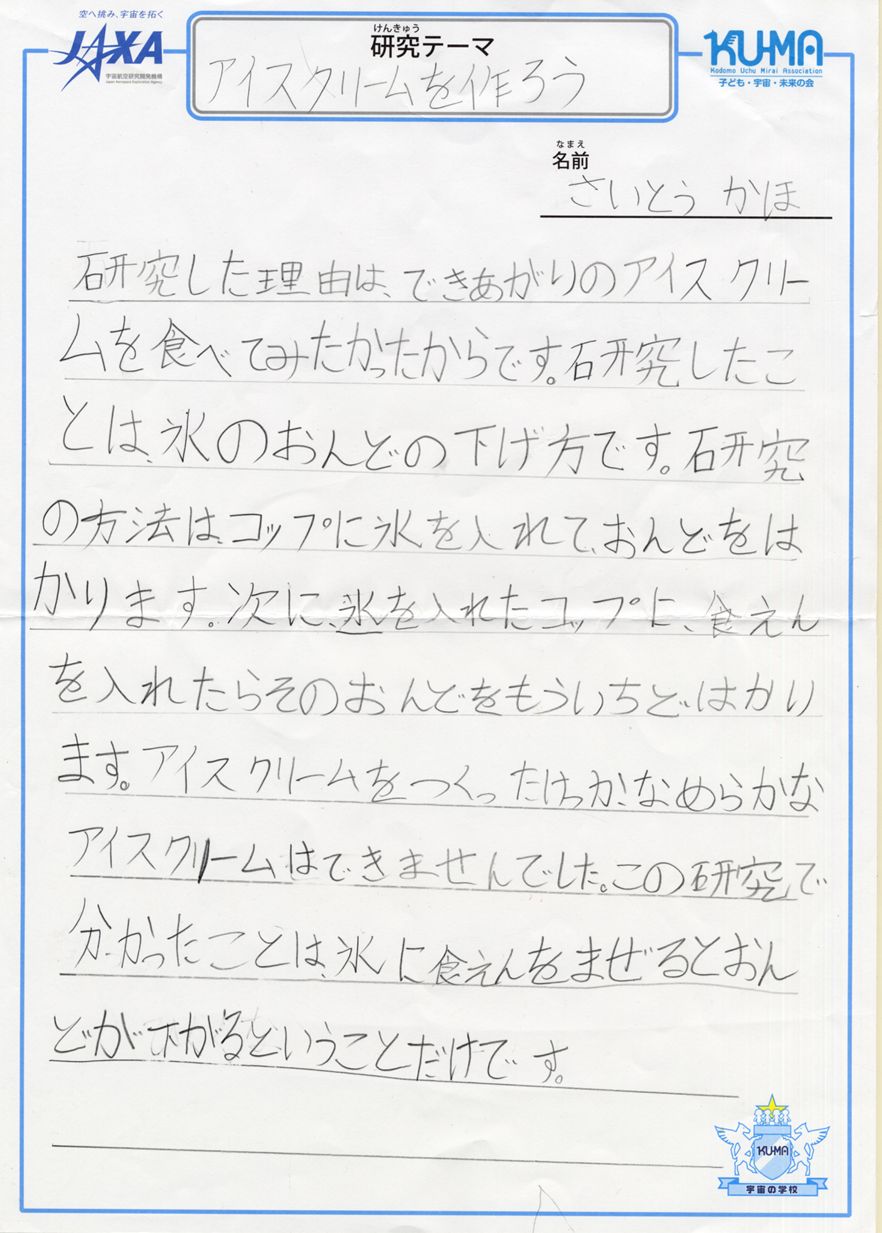 空へ挑み、宇宙を拓く
JAXA
宇宙航空研究開発機構
Japan Aerospace Exploration Agency
けんきゅう
研究テーマ
アイスクリームを作ろう
KU-MA
Kodomo Uchu Mirai Association
子ども・宇宙・未来の会
なまえ
名前
さいとう かほ
研究した理由は、できあがりのアイスクリー
ムを食べてみたかったからです。研究したこ
とは、氷のおんどの下げ方です。研究
の方法は、コップに氷を入れて、おんどをは
かります。次に、氷を入れたコップに、食えん
を入れたらそのおんどをもういちどはかり
ます。アイスクリームをつくったけっか、なめらかな
アイスクリームはできませんでした。この研究で
分かったことは、氷に食えんをまぜるとおん
どが下がるということだけです。
KU-MA
宇宙の学校